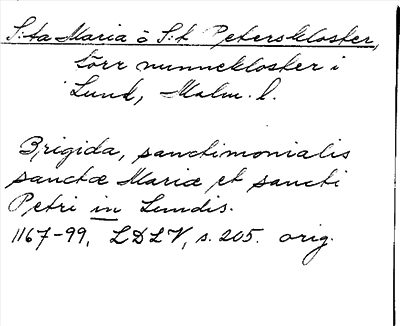 S:ta Maria o S:t Peterskloster,
förr nunnekloster i
Lund, Malm. l.
Brigida, sanctimonialis
sanctæ Mariæ et sancti
Petri in Lundis.
1167-99, LDLV, s. 205. orig.